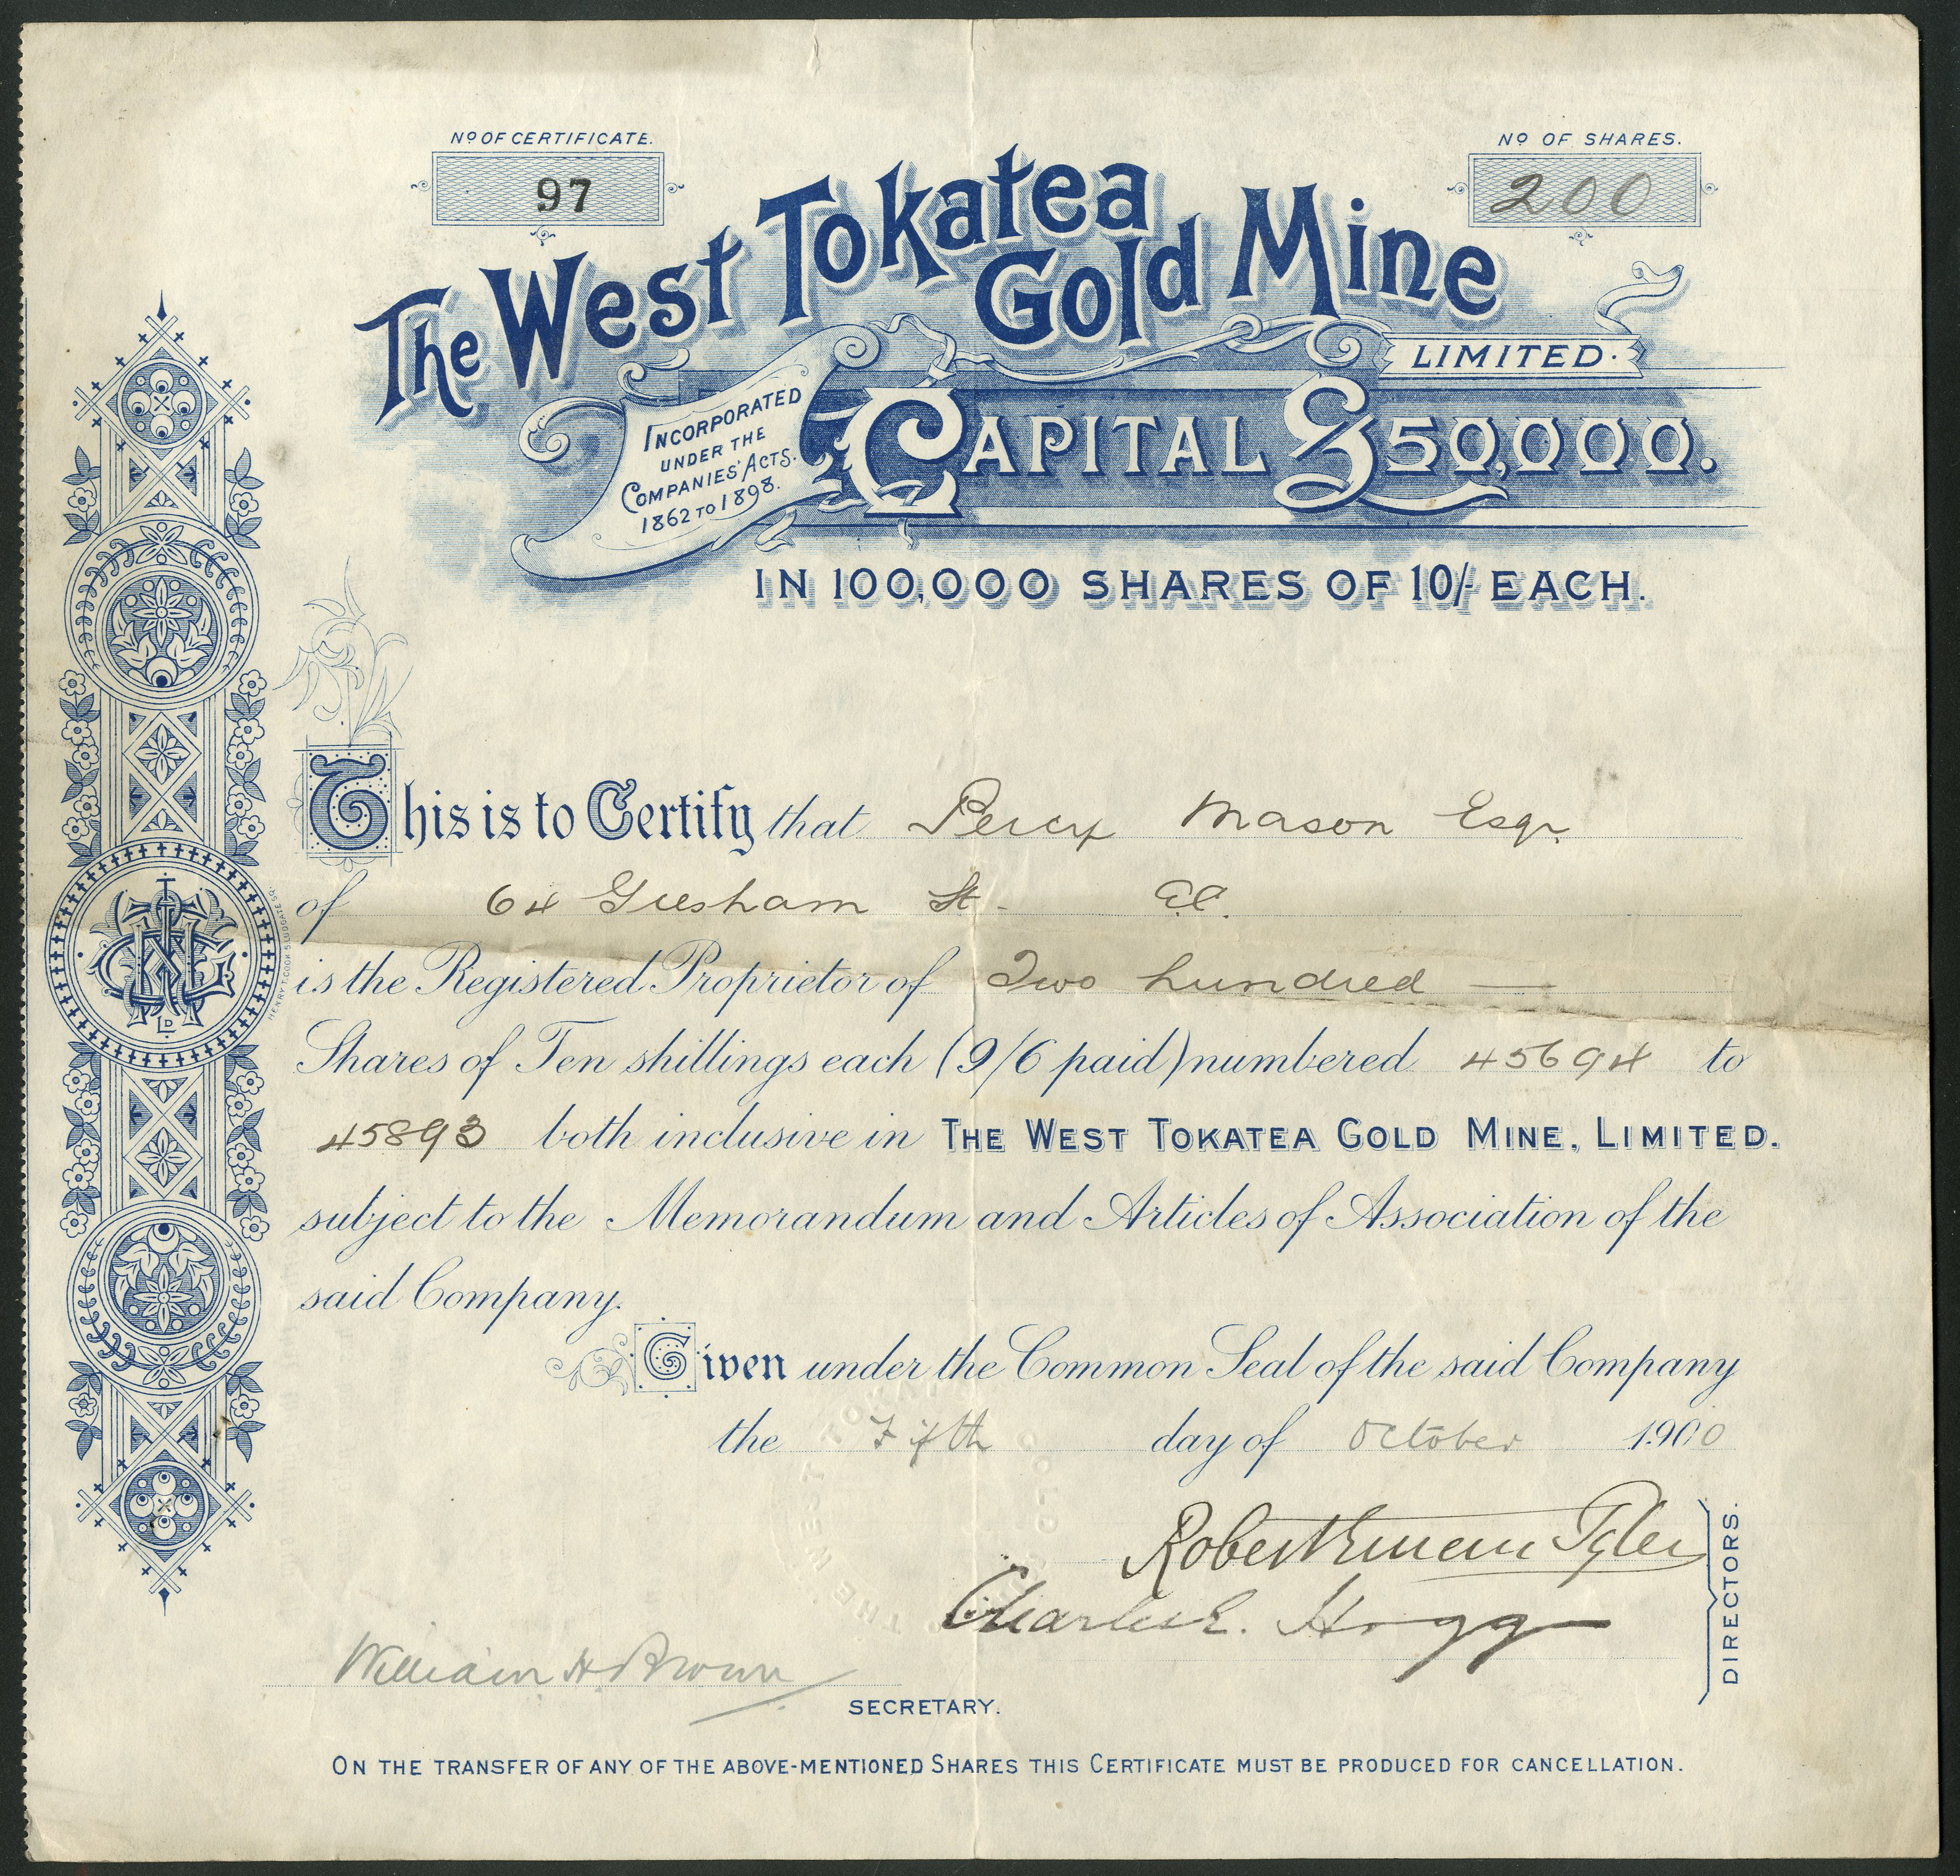 No OF CERTIFICATE.
97
No OF SHARES.
200
The West Tokatea
Gold Mine
LIMITED.
INCORPORATED
UNDER THE
COMPANIES' ACTS.
1862 TO 1898.
CAPITAL £50,000.
IN 100,000 SHARES OF 10/- EACH.
This is to Certify that Percy Mason Esqr.
of 64 Gresham St. E.C.
is the Registered Proprietor of Two hundred —
Shares of Ten shillings each (9/6 paid) numbered 45694 to
45893 both inclusive in THE WEST TOKATEA GOLD MINE, LIMITED.
subject to the Memorandum and Articles of Association of the
said Company.
Given under the Common Seal of the said Company
the Fifth day of October 1900
Robert Tyler
Charles E. Hogg
DIRECTORS.
William H. Brown
SECRETARY.
ON THE TRANSFER OF ANY OF THE ABOVE-MENTIONED SHARES THIS CERTIFICATE MUST BE PRODUCED FOR CANCELLATION.